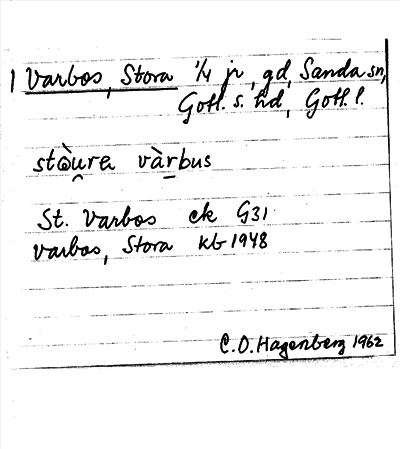 1 Varbos, Stora 1/4 jr, gd, Sanda sn,
Gotl. s. hd, Gotl. l.
stɷ̀u̯ra vàrbus
St. Varbos ek G31
Varbos, Stora kb 1948
C. O. Hagenberg 1962